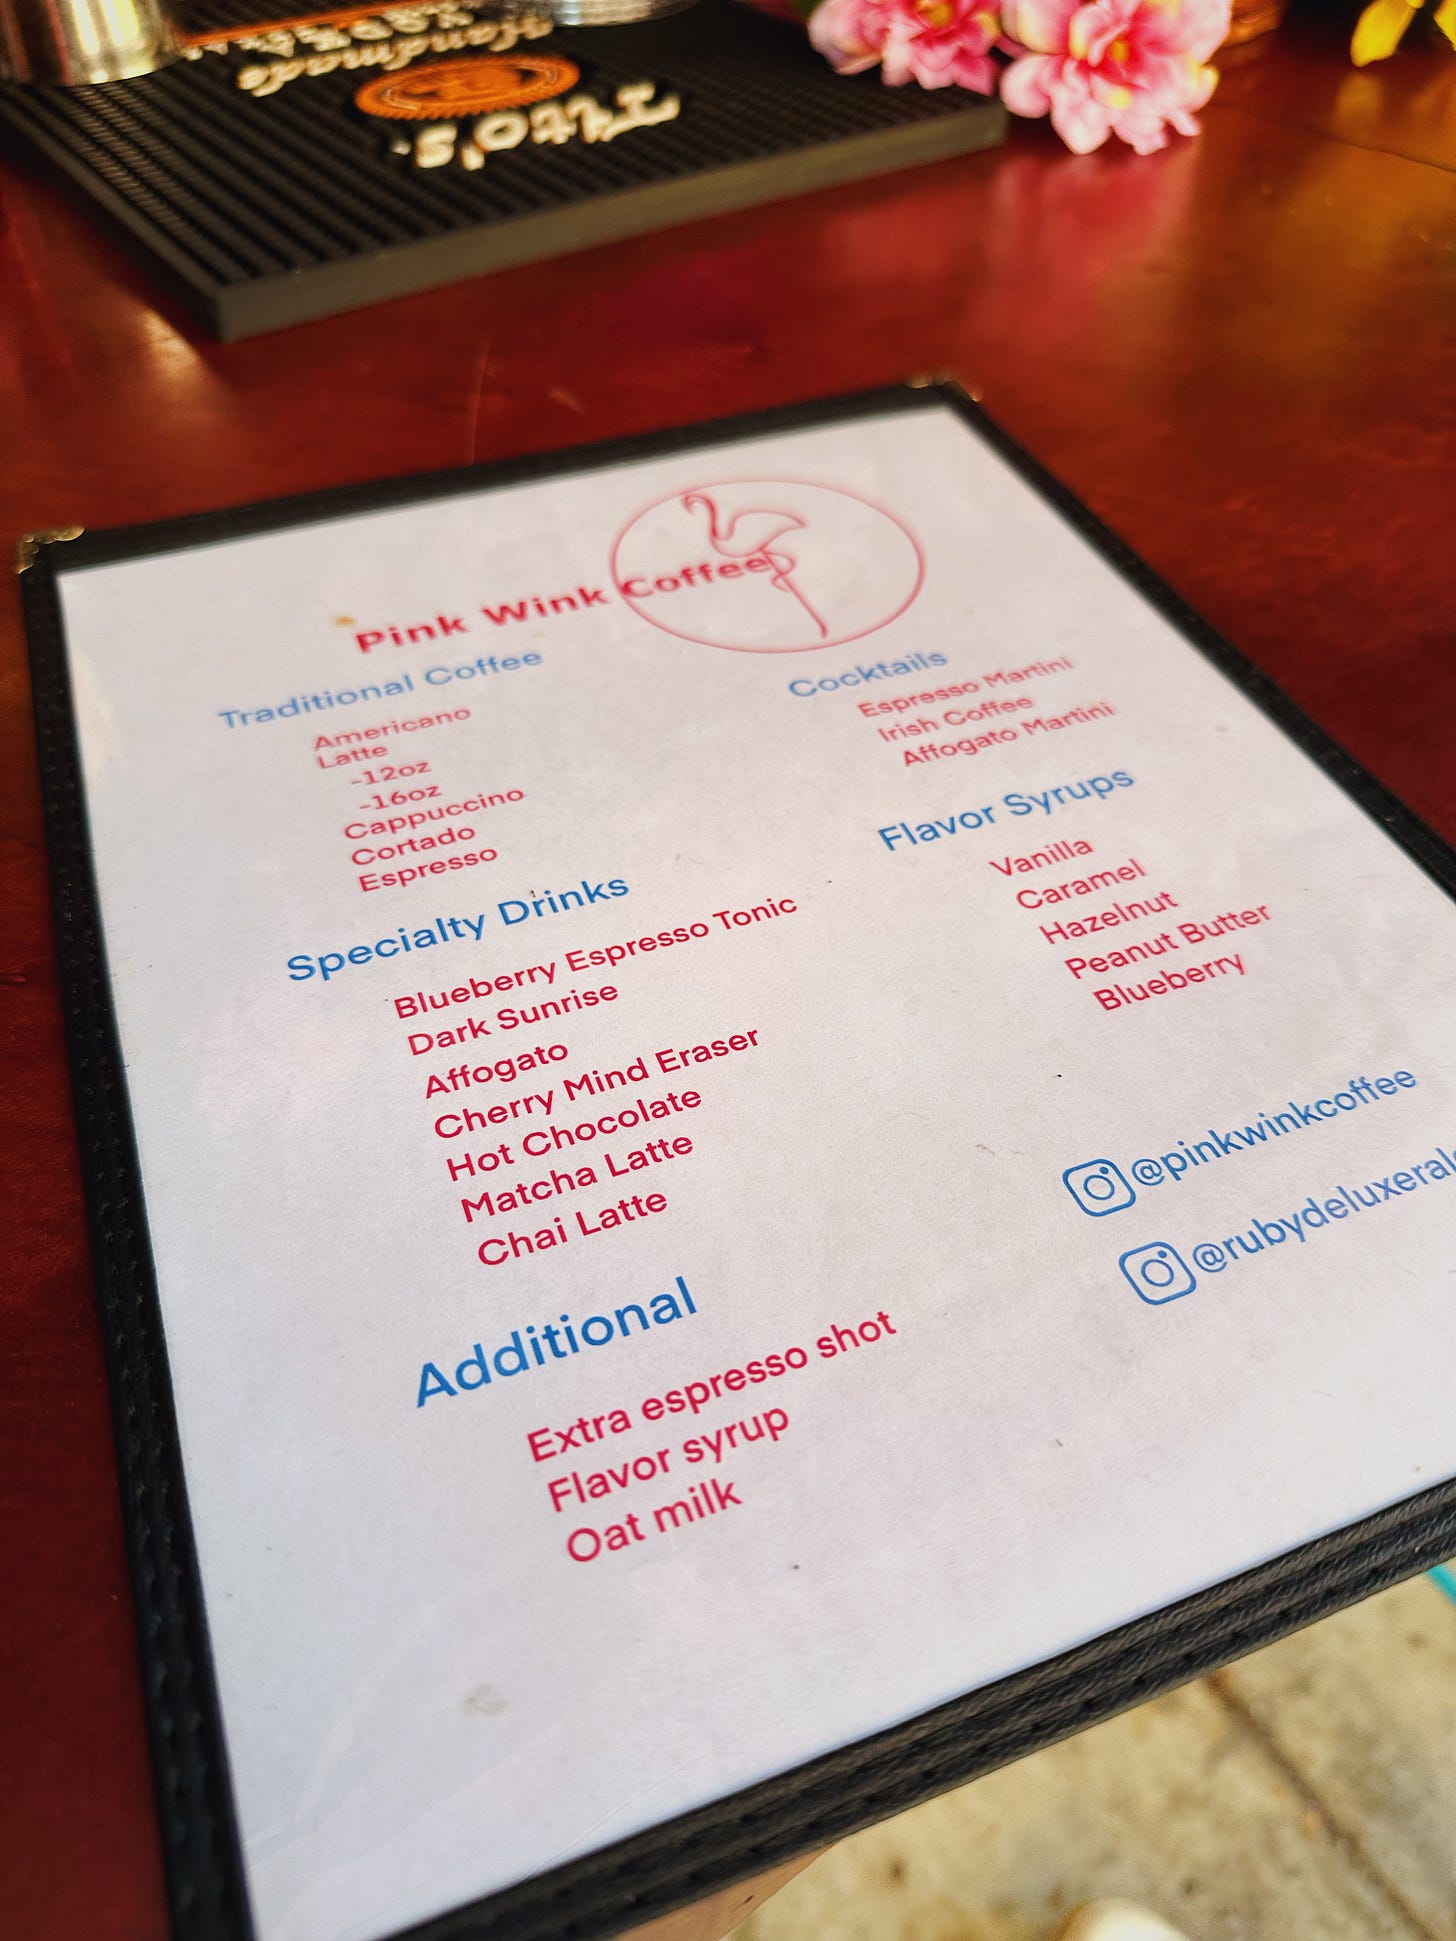 Tito's
Handmade
VODKA
Pink Wink Coffee
Traditional Coffee
Americano
Latte
-12oz
-16oz
Cappuccino
Cortado
Espresso
Specialty Drinks
Blueberry Espresso Tonic
Dark Sunrise
Affogato
Cherry Mind Eraser
Hot Chocolate
Matcha Latte
Chai Latte
Additional
Extra espresso shot
Flavor syrup
Oat milk
Cocktails
Espresso Martini
Irish Coffee
Affogato Martini
Flavor Syrups
Vanilla
Caramel
Hazelnut
Peanut Butter
Blueberry
@pinkwinkcoffee